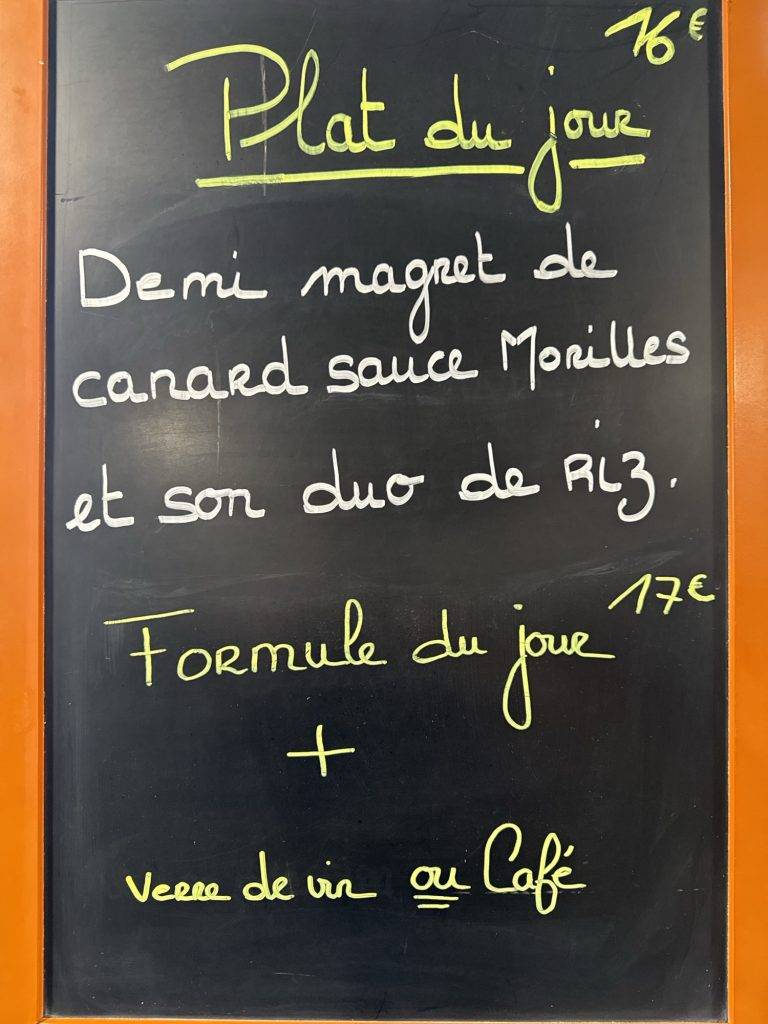 16€
Plat du jour
Demi magret de
canard sauce Morilles
et son duo de Riz.
17€
Formule du jour
+
verre de vin ou Café